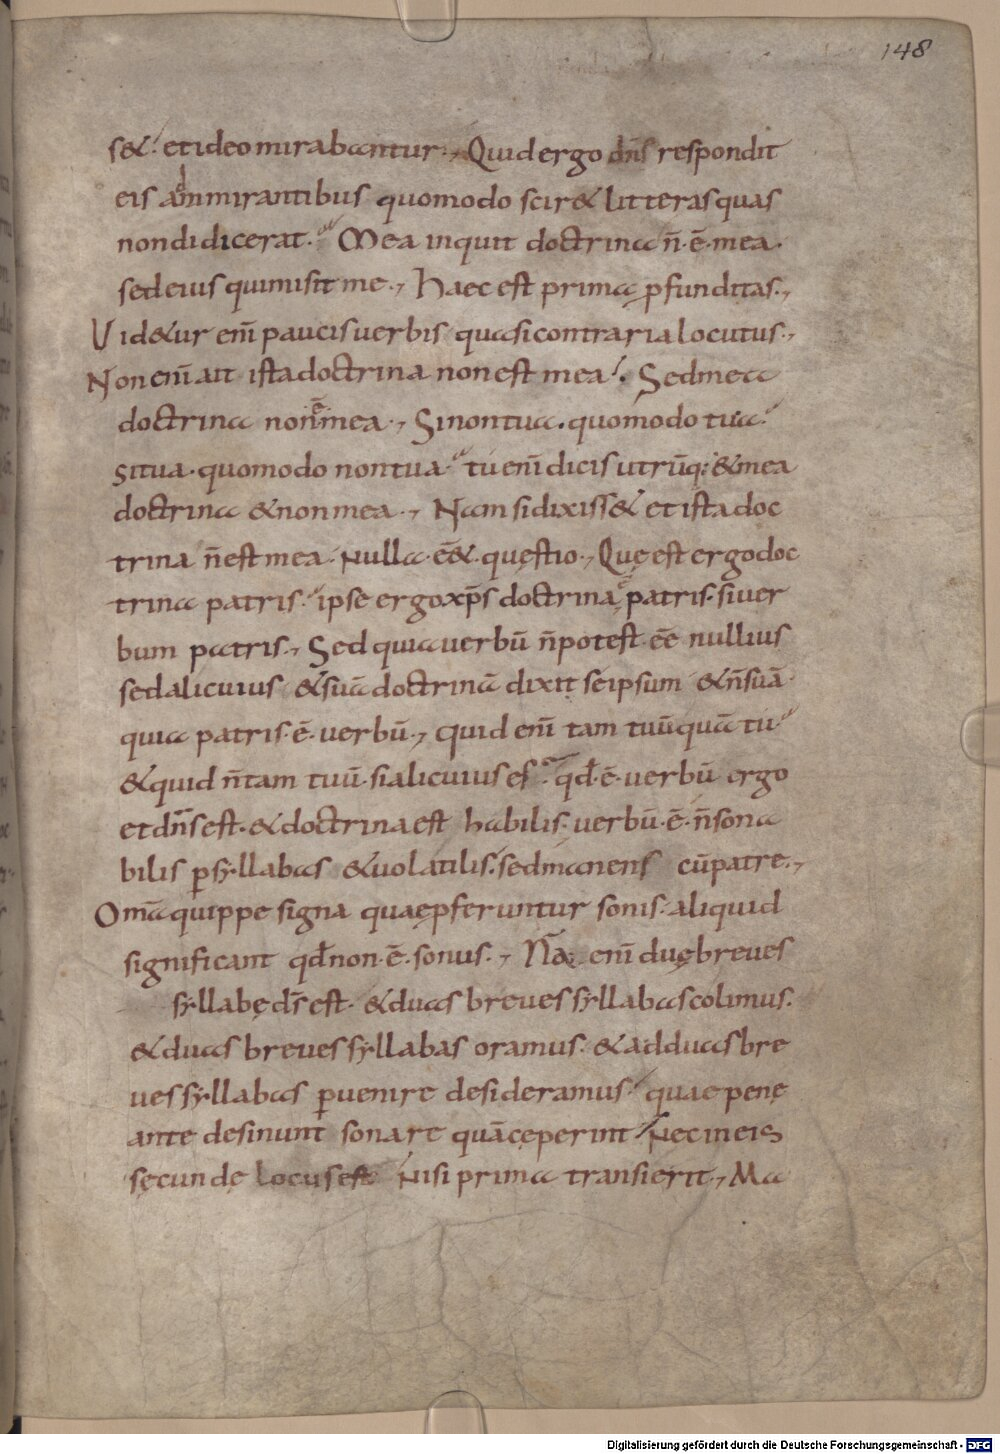 148
s&. et ideo mirabantur., Quid ergo dn̄s respondit
eis ammirantibus quomodo scir& litteras quas
non didicerat. Mea inquit doctrina n̄.ē.mea.
sed eius qui misit me., Haec est prima ꝓfunditas.,
Vid&ur enī paucis uerbis quasi contraria locutus.,
Non enī ait ista doctrina non est mea. Sed mea
doctrina non ē mea., Si non tua. quomodo tua.
Si tua. quomodo non tua. tu enī dicis utrūq; & mea
doctrina & non mea., Nam si dixiss& et ista doc
trina n̄ est mea. Nulla. ēē&. quęstio., Quę est ergo doc
trina patris. ipse ergo xp̄s doctrina ē patris. si uer
bum patris., Sed quia uerbū n̄ potest ēē nullius
sed alicuius & suā doctrinā dixit seipsum & n̄ suā.
quia patris.ē. uerbū., quid enī tam tuū quā tu.
& quid n̄ tam tuū. si alicuius es. qđ.ē. uerbū ergo
et dn̄s est. & doctrina est habilis. uerbū.ē. n̄ sona
bilis ꝑ syllabas & uolatilis. sed manens cū patre.,
Omā quippe signa quaę ꝓferuntur sonis. aliquid
significant qđ non.ē. sonus., Nā enī duę breues
syllabę dš est. & duas breues syllabas colimus.
& duas breues syllabas oramus. & ad duas bre
ues syllabas ꝑuenire desideramus. quae penę
ante desinunt sonare quā cęperint. Nec in eis
sęcundę locus est Nisi prima transierit., Ma
Digitalisierung gefördert durch die Deutsche Forschungsgemeinschaft - DFG